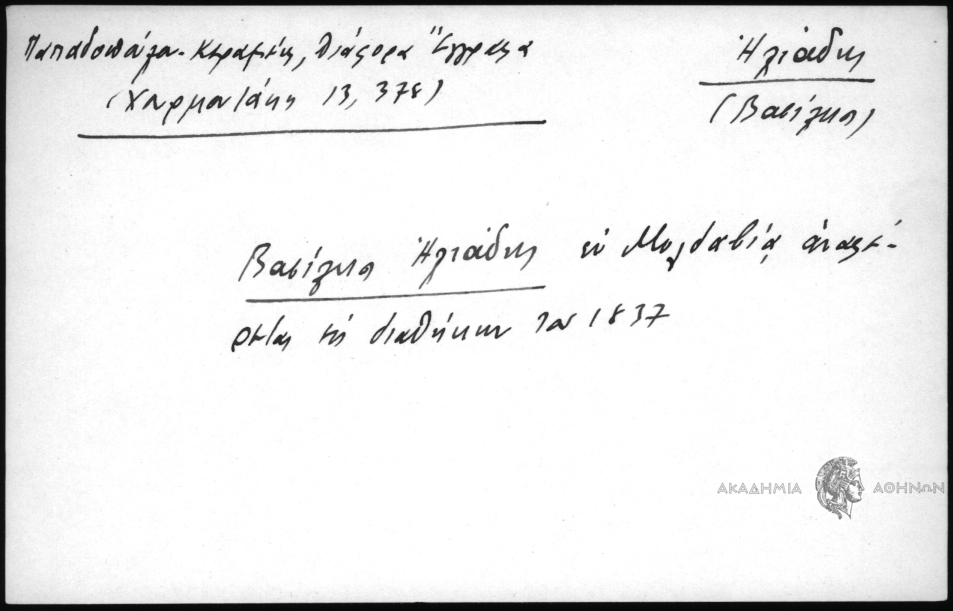 Παπαδοπούλου-Κεραμέως, Διάφορα Ἔγγραφα
(Χουρμουζάκης 13, 378)
Ἠλιάδης
(Βασίλειος)
Βασίλειος Ἠλιάδης ἐν Μολδαβίᾳ ἀναφέ-
ρεται εἰς διαθήκην τοῦ 1837
ΑΚΑΔΗΜΙΑ ΑΘΗΝΩΝ